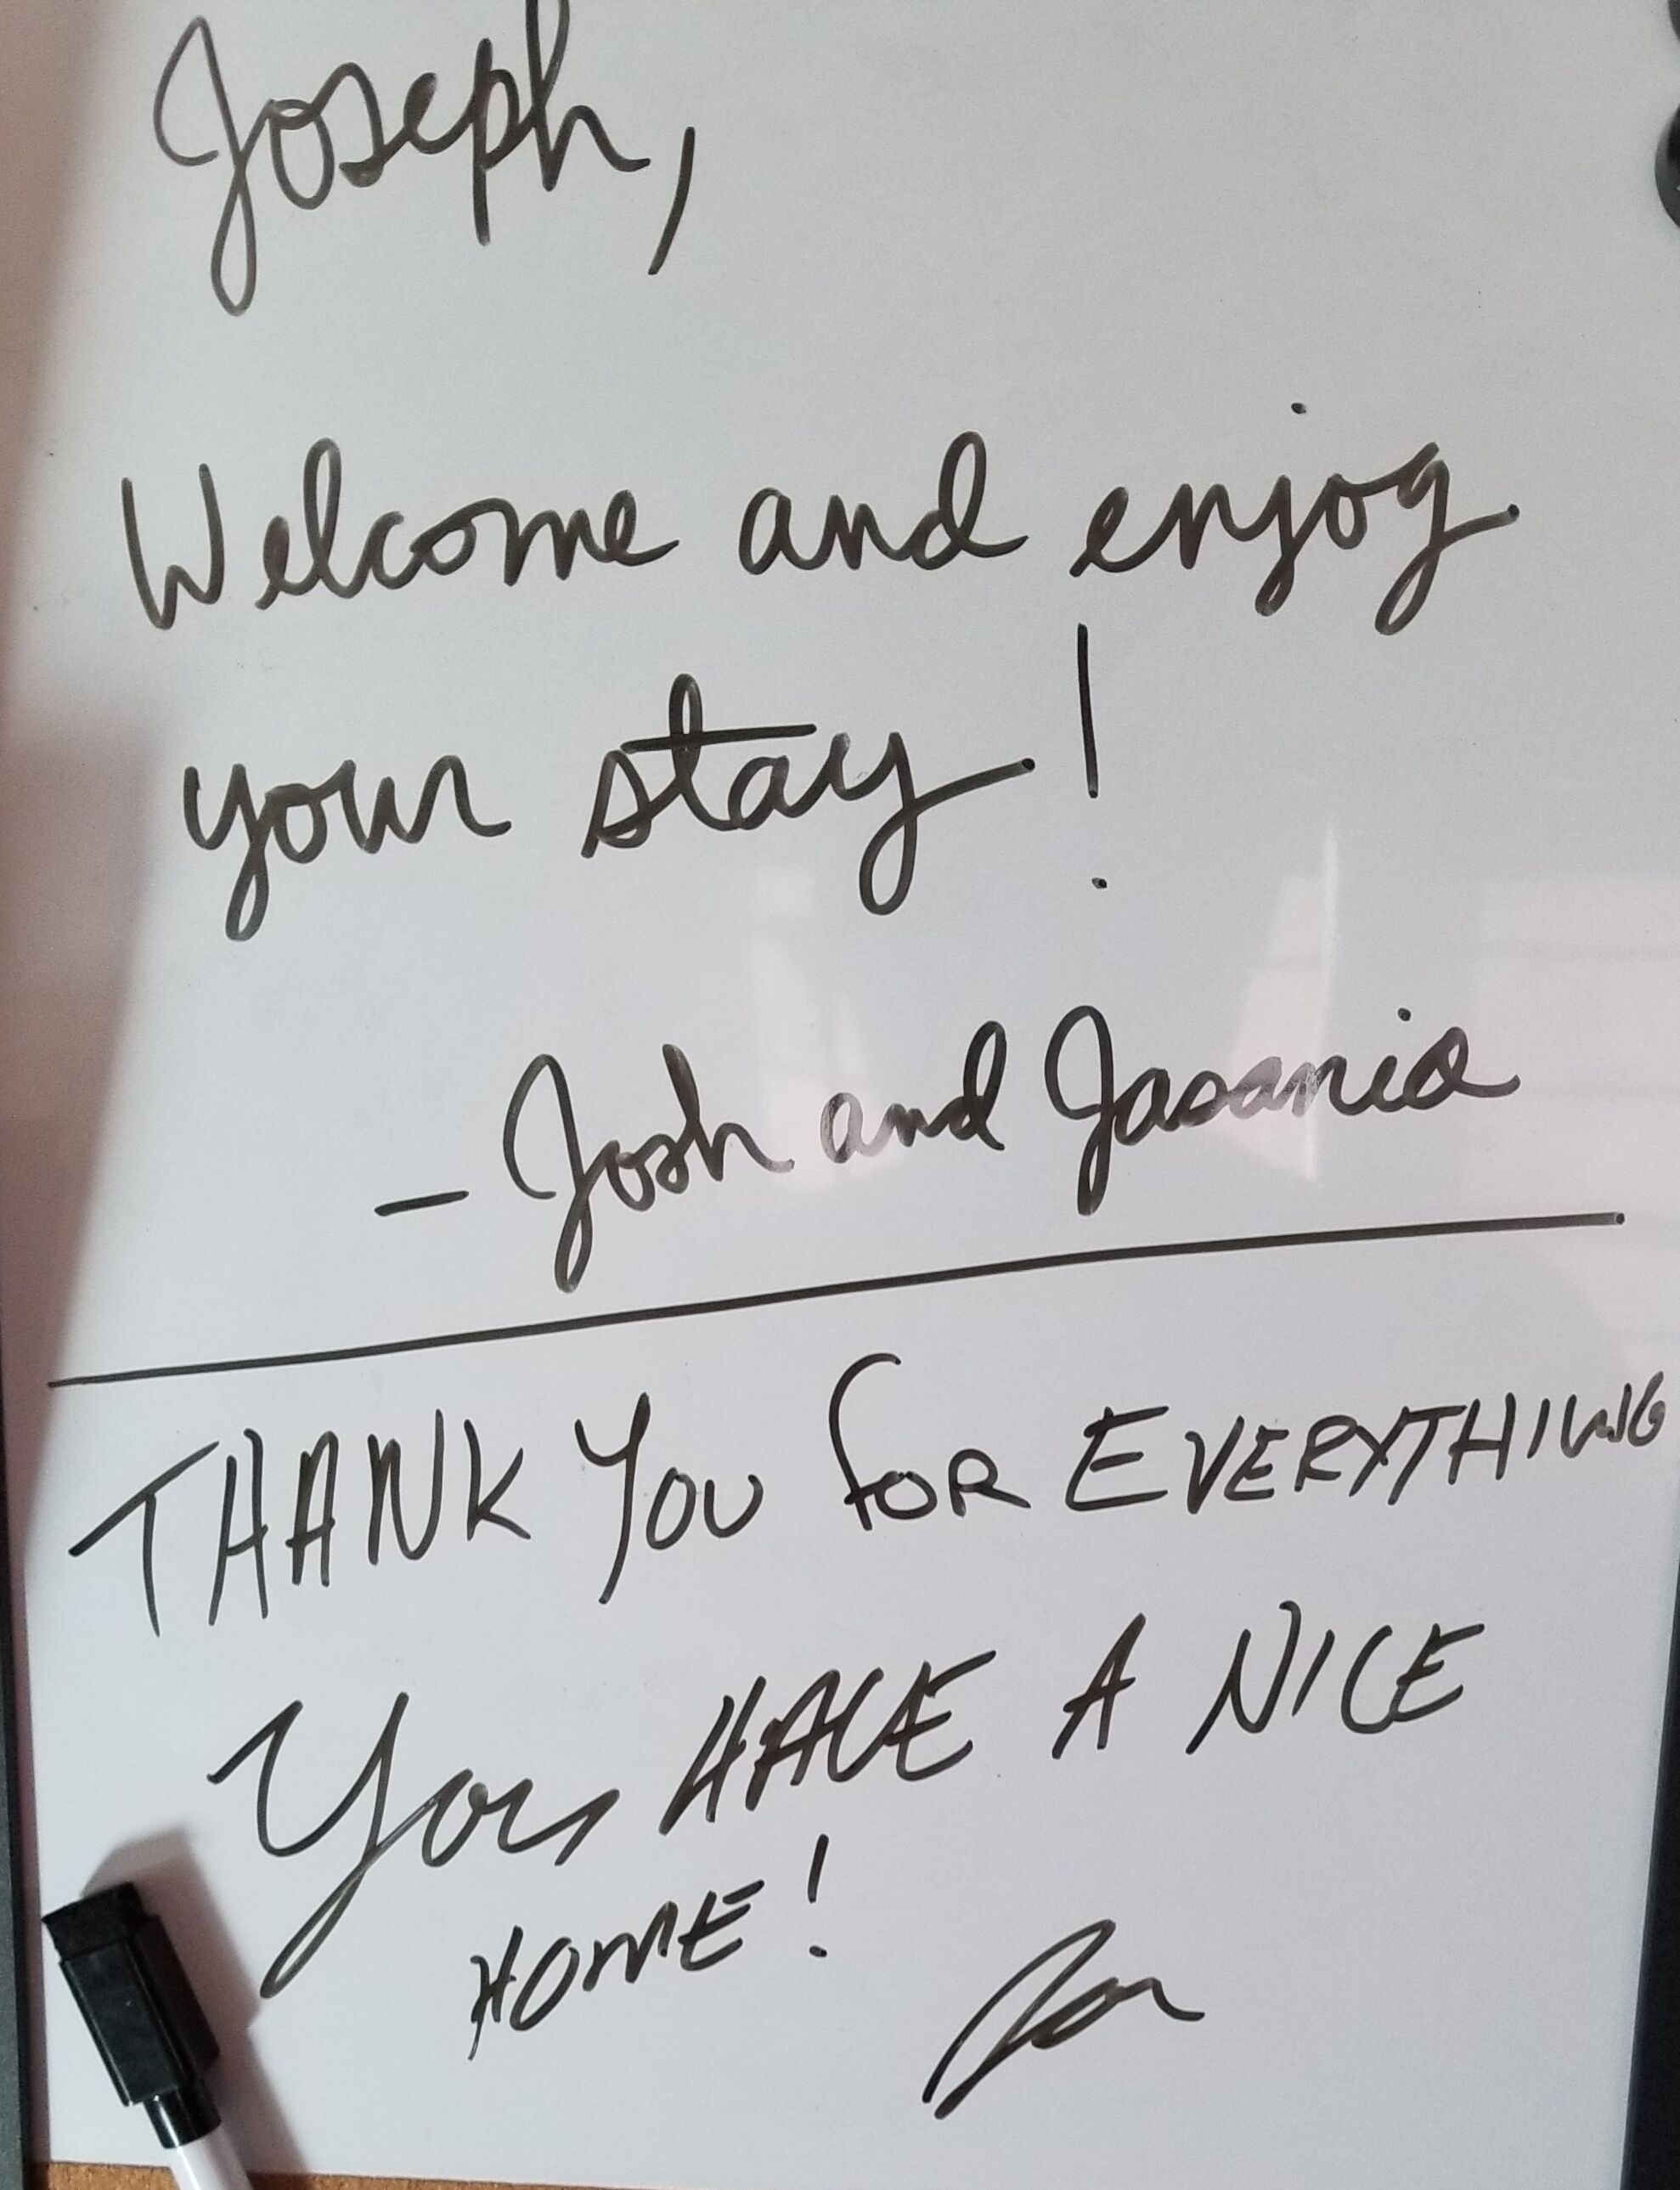 Joseph,
Welcome and enjoy
your stay!
- Josh and Jasania
THANK YOU FOR EVERYTHING
You HAVE A NICE
HOME!